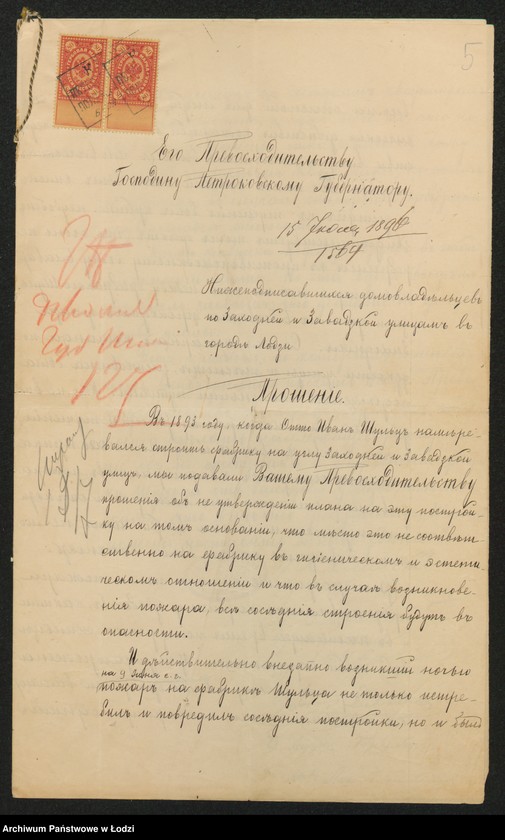 5
Его Превосходительству
Господину Петроковскому Губернатору.
15 Июня 1896
1564
Нижеподписавшихся домовладѣльцевъ
по Заходней и Завадзкой улицамъ въ
городѣ Лодзи
Прошеніе.
127
Въ 1893 году, когда Отто Иванъ Шульцъ намѣре-
вался строить фабрику на углу Заходней и Завадзкой
улицъ, мы подавали Вашему Превосходительству
прошенія объ не утвержденіи плана на эту построй-
ку на томъ основаніи, что мѣсто это не соотвѣт-
ственно на фабрику въ гигіеническомъ и эстети-
ческомъ отношеніи и что въ случаѣ возникнове-
нія пожара, всѣ сосѣднія строенія будутъ въ
опасности.
И дѣйствительно внезапно возникшій ночью
на 9 Іюня с. г.
пожаръ на фабрикѣ Шульца не только истре-
билъ и повредилъ сосѣднія постройки, но и было
Archiwum Państwowe w Łodzi